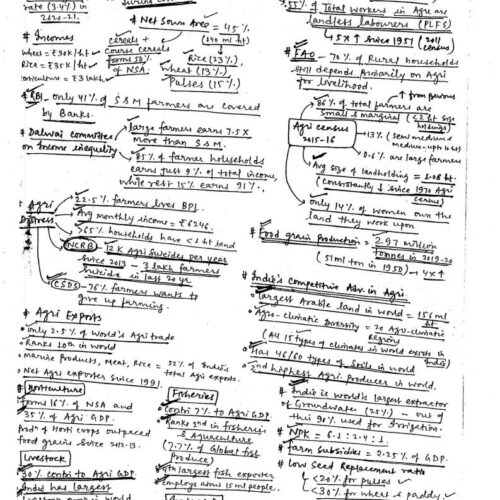 rate (3.4%) in
2020-21.
# Incomes
Wheat = ₹30K/ht
Rice = ₹35K/ht
Horticulture = ₹3 lakh
# RBI - only 41% of S&M farmers are covered
by Banks.
# Dalwai committee
on Income inequality
large farmers earns 7.5X
more than S&M.
85% of farmer households
earn just 9% of total income,
while rest 15% earns 91%.
# Net Sown Area = 45%
(140 ml ht)
cereals +
Coarse cereals
forms 52%
of NSA.
Rice (23%)
wheat (13%)
Pulses (15%)
# Agri
Distress
22.5% farmers lives BPL.
Avg monthly income = ₹6246.
>65% households have <1 ht land
NCRB - 12K Agri Suicides per year
since 2013 - 3 lakh farmers
Suicide in last 20 yr.
CSDS - 76% farmers wants to
give up farming.
# Agri Exports
only 2.5% of World's Agri trade
Ranks 10th in world
Marine Products, Meat, Rice = 52% of India's
total Agri Exports.
Net Agri exporter since 1991.
Horticulture
Forms 16% of NSA and
35% of Agri GDP.
Prodn of Horti crops outpaced
food grains since 2012-13.
Livestock
30% contri to Agri GDP.
India has largest
Fisheries
Contri 7% to Agri GDP.
Rank 2nd in fisheries
& Aquaculture
(7.7% of Global fish
Produce)
largest fish exporter
Employs about 15 ml people.
55% of Total workers in Agri are
landless labourers (PLFS)
5X ↑ since 1951 (2011
census)
# FAO - 70% of Rural households
still depends primarily on Agri
for livelihood.
↑ from previous
Agri census
2015-16
86% of total farmers are
small & marginal (<2 ht size
holdings)
13% (semi medium &
medium - upto 10 ht)
0.6% are large farmers
Avg size of landholding = 1.08 ht.
(constantly ↓ since 1970 Agri
census)
only 14% of women own the
land they work upon
# Food grain Production = 297 million
tonnes in 2019-20
(51 ml ton in 1950) - 4X ↑
# India's Competitive Adv. in Agri
Largest Arable land in world = 156 ml
ht
Agro-climatic Diversity = 20 Agro-climatic
regions
(All 15 types of climates in world exists in
India)
Has 46/60 types of Soils in world
2nd highest Agri. producer in world.
# India is world's largest extractor
of Groundwater (25%) - out of
this 90% used for Irrigation.
# NPK = 6.1 : 2.4 : 1.
# Farm subsidies = 2.25% of GDP.
# Low Seed Replacement ratio
<20% for pulses
<30% for wheat & paddy